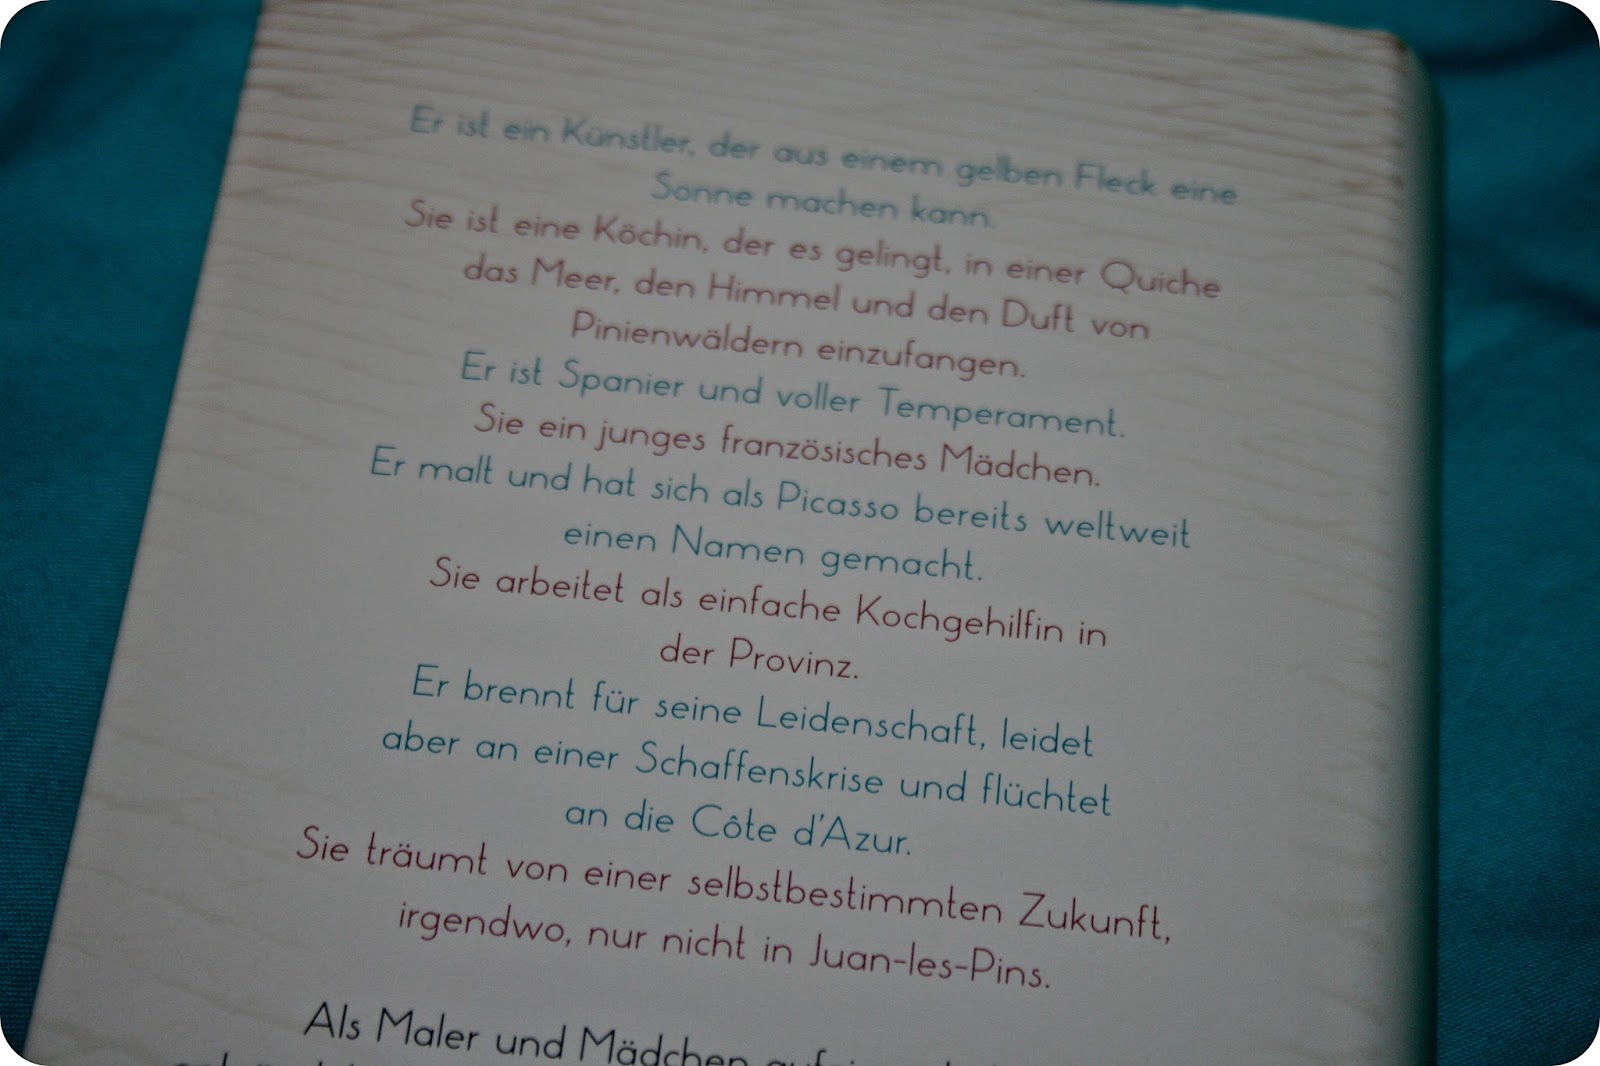 Er ist ein Künstler, der aus einem gelben Fleck eine
Sonne machen kann.
Sie ist eine Köchin, der es gelingt, in einer Quiche
das Meer, den Himmel und den Duft von
Pinienwäldern einzufangen.
Er ist Spanier und voller Temperament.
Sie ein junges französisches Mädchen.
Er malt und hat sich als Picasso bereits weltweit
einen Namen gemacht.
Sie arbeitet als einfache Kochgehilfin in
der Provinz.
Er brennt für seine Leidenschaft, leidet
aber an einer Schaffenskrise und flüchtet
an die Côte d'Azur.
Sie träumt von einer selbstbestimmten Zukunft,
irgendwo, nur nicht in Juan-les-Pins.
Als Maler und Mädchen